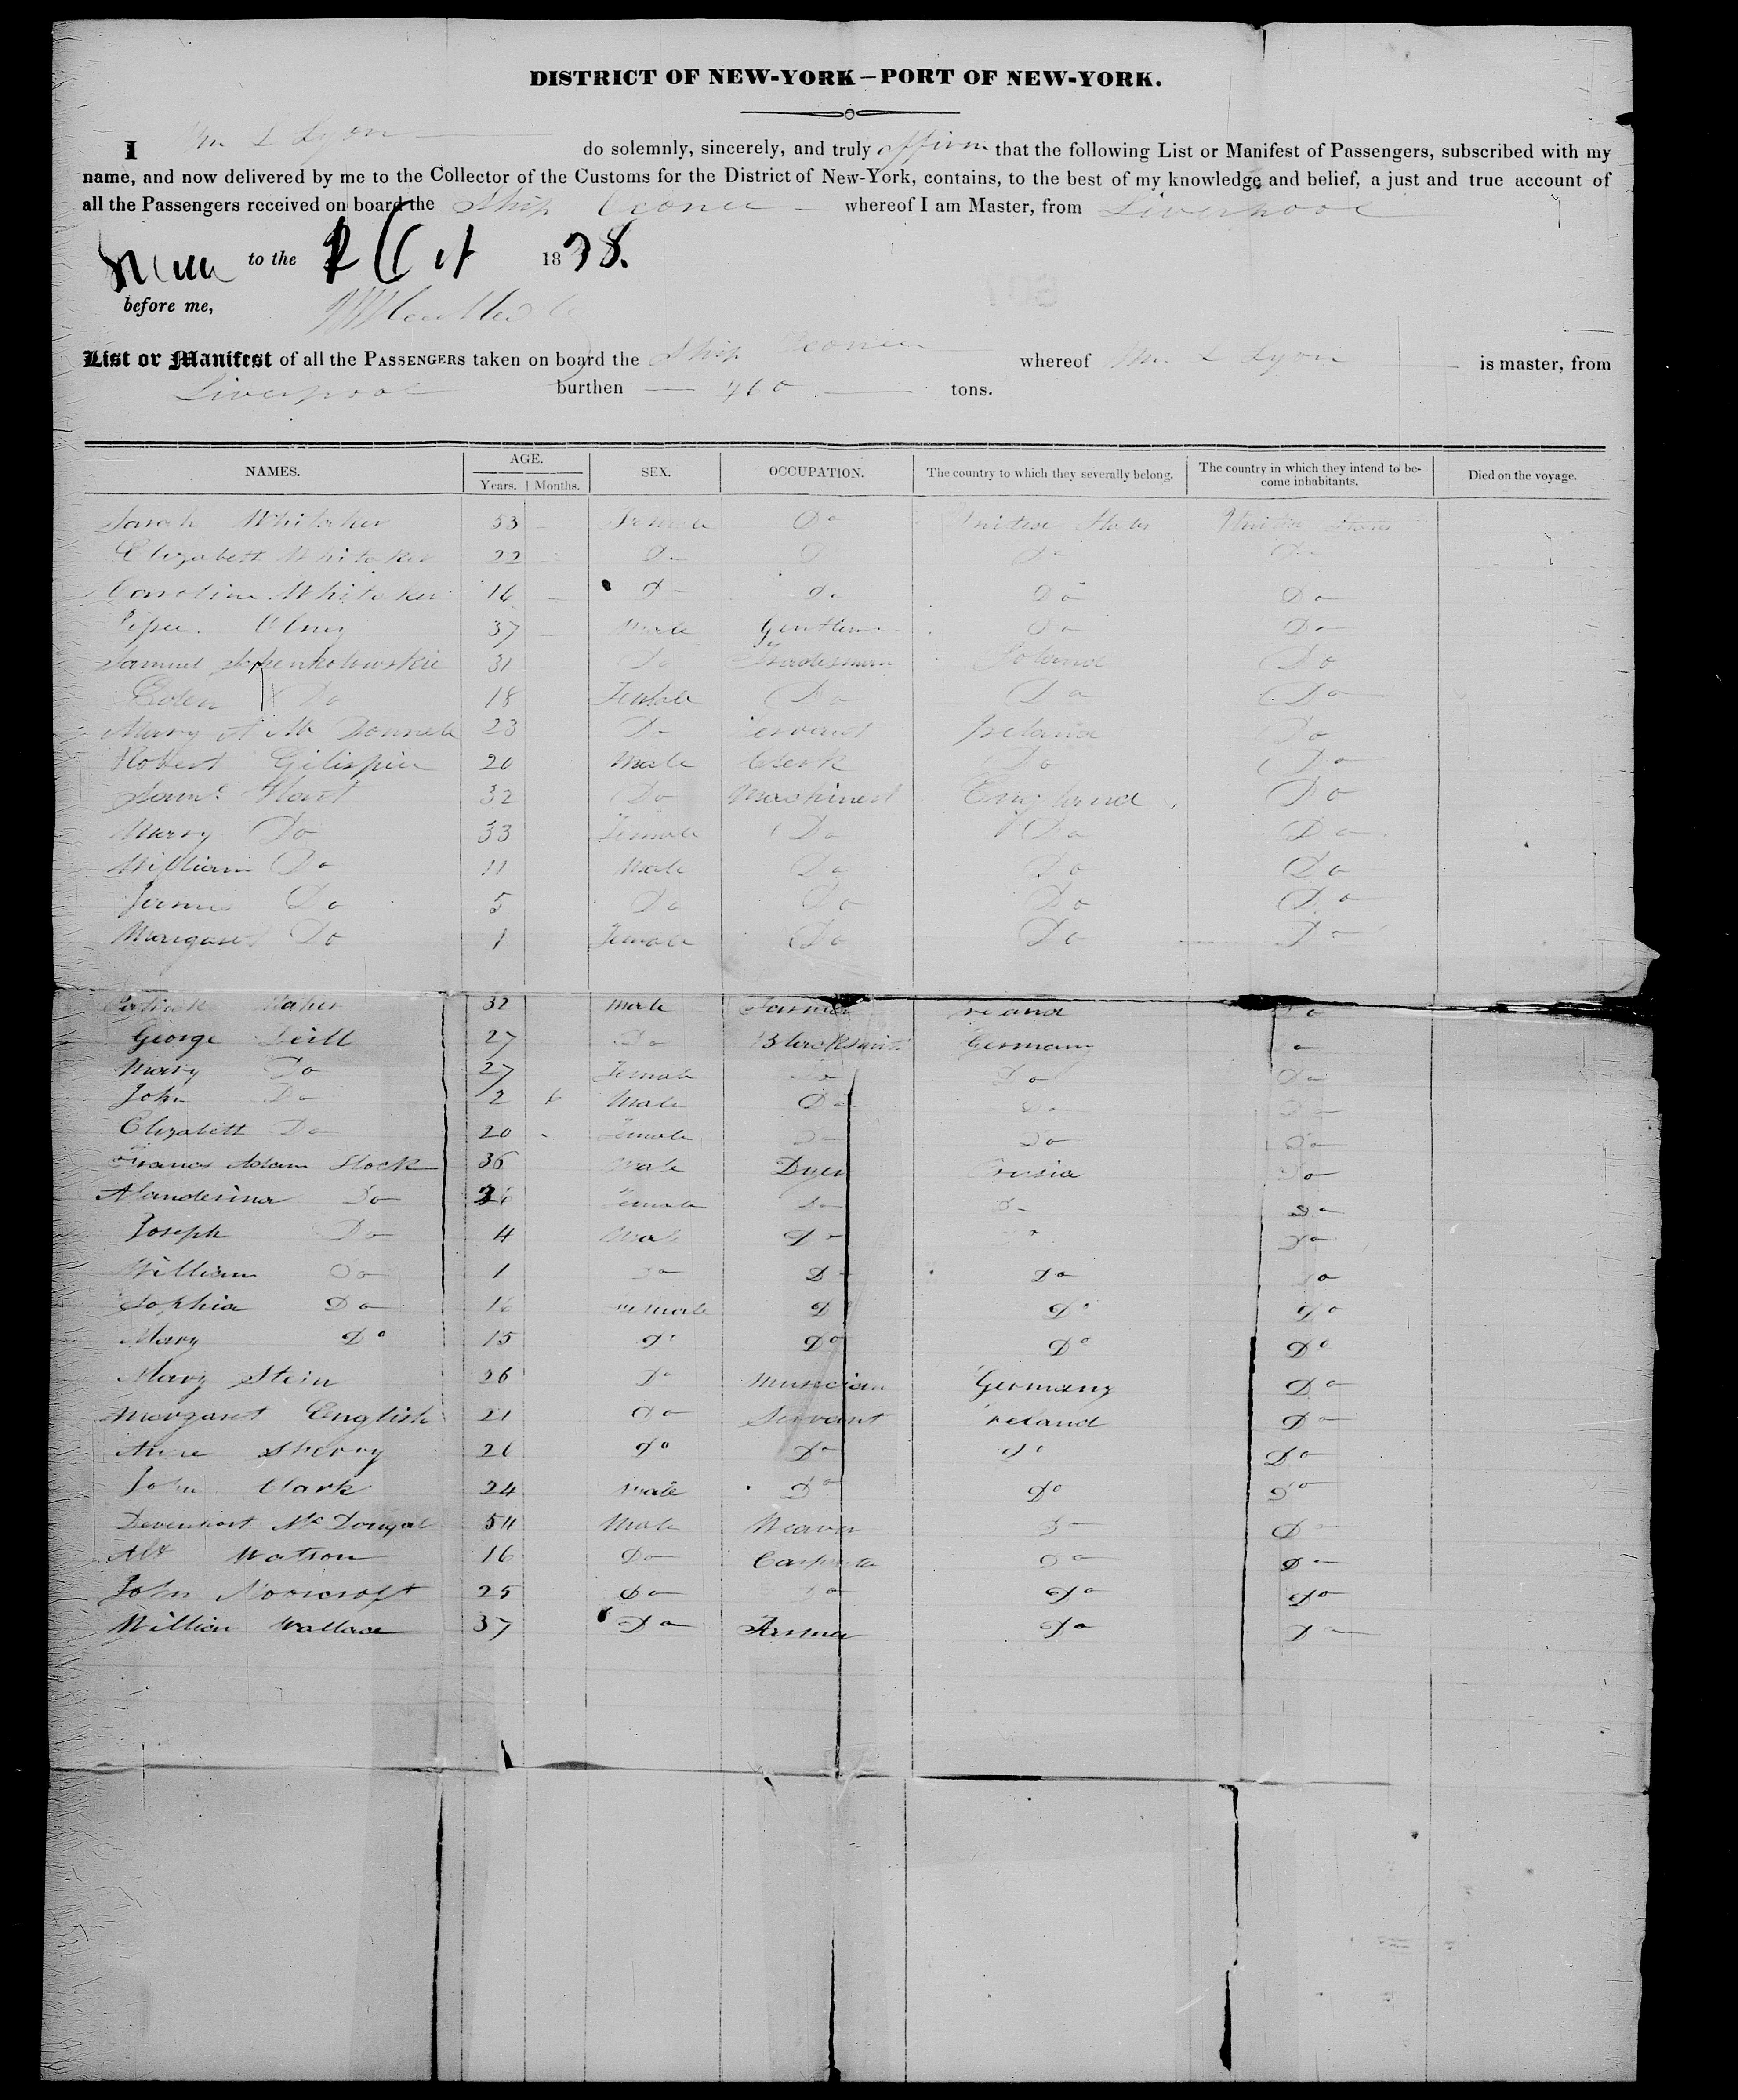 DISTRICT OF NEW-YORK—PORT OF NEW-YORK.
I Wm L Lyon do solemnly, sincerely, and truly affirm that the following List or Manifest of Passengers, subscribed with my
name, and now delivered by me to the Collector of the Customs for the District of New-York, contains, to the best of my knowledge and belief, a just and true account of
all the Passengers received on board the Ship whereof I am Master, from Liverpool
to the Oct 1838.
before me,
List or Manifest of all the PASSENGERS taken on board the Ship whereof Wm L Lyon is master, from
Liverpool burthen — 460 — tons.
NAMES. AGE. SEX. OCCUPATION. The country to which they severally belong. The country in which they intend to be- Died on the voyage.
Years. Months. come inhabitants.
Sarah Whitaker 53 — Female Do United States United States
Elizabeth Whitaker 22 — Do Do Do
Caroline Whitaker 16 — Do Do Do Do
Olney 37 — Male Gentleman Do Do
Samuel 31 Do Tradesman Poland Do
Do 18 Female Do Do Do
Mary A Mc Donnell 23 Do Servant Ireland Do
Robert Gilispie 20 Male Clerk Do Do
Saml 32 Do Machinest England Do
Marry Do 33 Female Do Do Do
William Do 11 Male Do Do Do
James Do 5 Do Do Do Do
Margaret Do 1 Female Do Do Do
Patrick Maher 32 Male Farmer Ireland Do
George 27 Do Blacksmith Germany Do
Mary Do 27 Female Do Do Do
John Do 2 6 Male Do Do Do
Elizabett Do 20 Female Do Do Do
Francs Adam Stock 36 Male Dyer Prusia Do
Do 26 Female Do Do Do
Joseph Do 4 Male Do Do Do
William Do 1 Do Do Do Do
Sophia Do 16 Female Do Do Do
Mary Do 15 Do Do Do Do
Mary Stein 26 Do Musician Germany Do
Margaret English 21 Do Servant Ireland Do
Anne Sherry 26 Do Do Do Do
John Clark 24 Male Do Do Do
Mc Dougal 54 Male Weaver Do Do
Watson 16 Do Carpenter Do Do
John 25 Do Do Do Do
William Wallace 37 Do Do Do